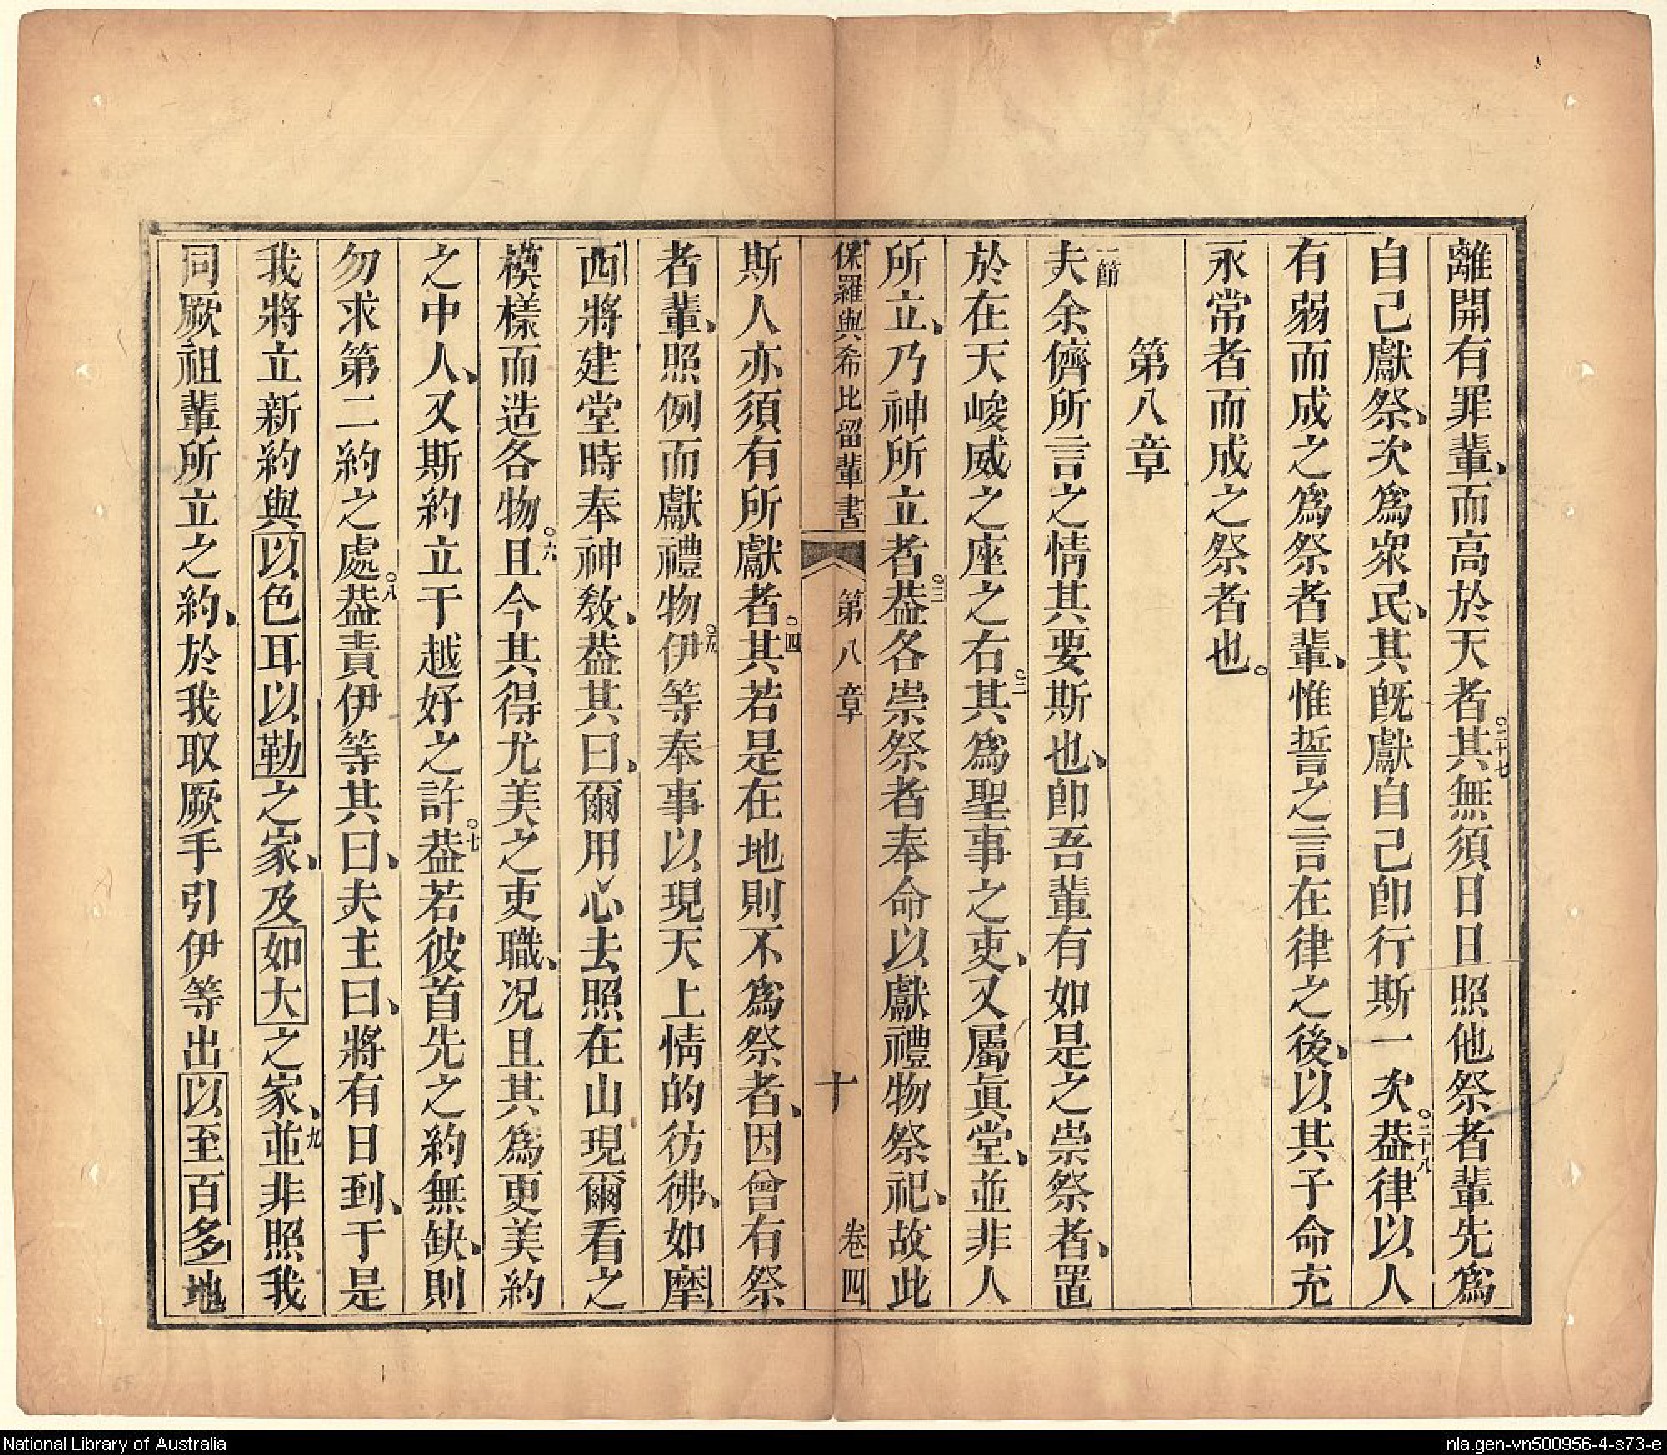 離開有罪輩、而高於天者。二十七其無須日日照他祭者輩先爲
自己獻祭、次爲衆民、其旣獻自己卽行斯一次。二十八葢律以人
有弱而成之爲祭者輩、惟誓之言在律之後、以其子命充
永常者而成之祭者也。
第八章
一節夫余儕所言之情其要斯也、卽吾輩有如是之崇祭者、置
於在天峻威之座之右。二其爲聖事之吏、又屬眞堂、並非人
所立、乃神所立者。三葢各崇祭者奉命以獻禮物祭祀、故此
保羅與希比留輩書 第八章 十 卷四
斯人亦須有所獻者。四其若是在地則不爲祭者、因曾有祭
者輩、照例而獻禮物。五伊等奉事以現天上情的彷彿、如摩
西將建堂時奉神敎、葢其曰、爾用心去照在山現爾看之
模樣而造各物。六且今其得尤美之吏職、况且其爲更美約
之中人、又斯約立于越好之許。七葢若彼首先之約無缺、則
勿求第二約之處。八葢責伊等其曰、夫主曰、將有日到、于是
我將立新約與以色耳以勒之家、及如大之家、九並非照我
同厥祖輩所立之約、於我取厥手引伊等出以至百多地
National Library of Australia
nla.gen-vn500956-4-s73-e